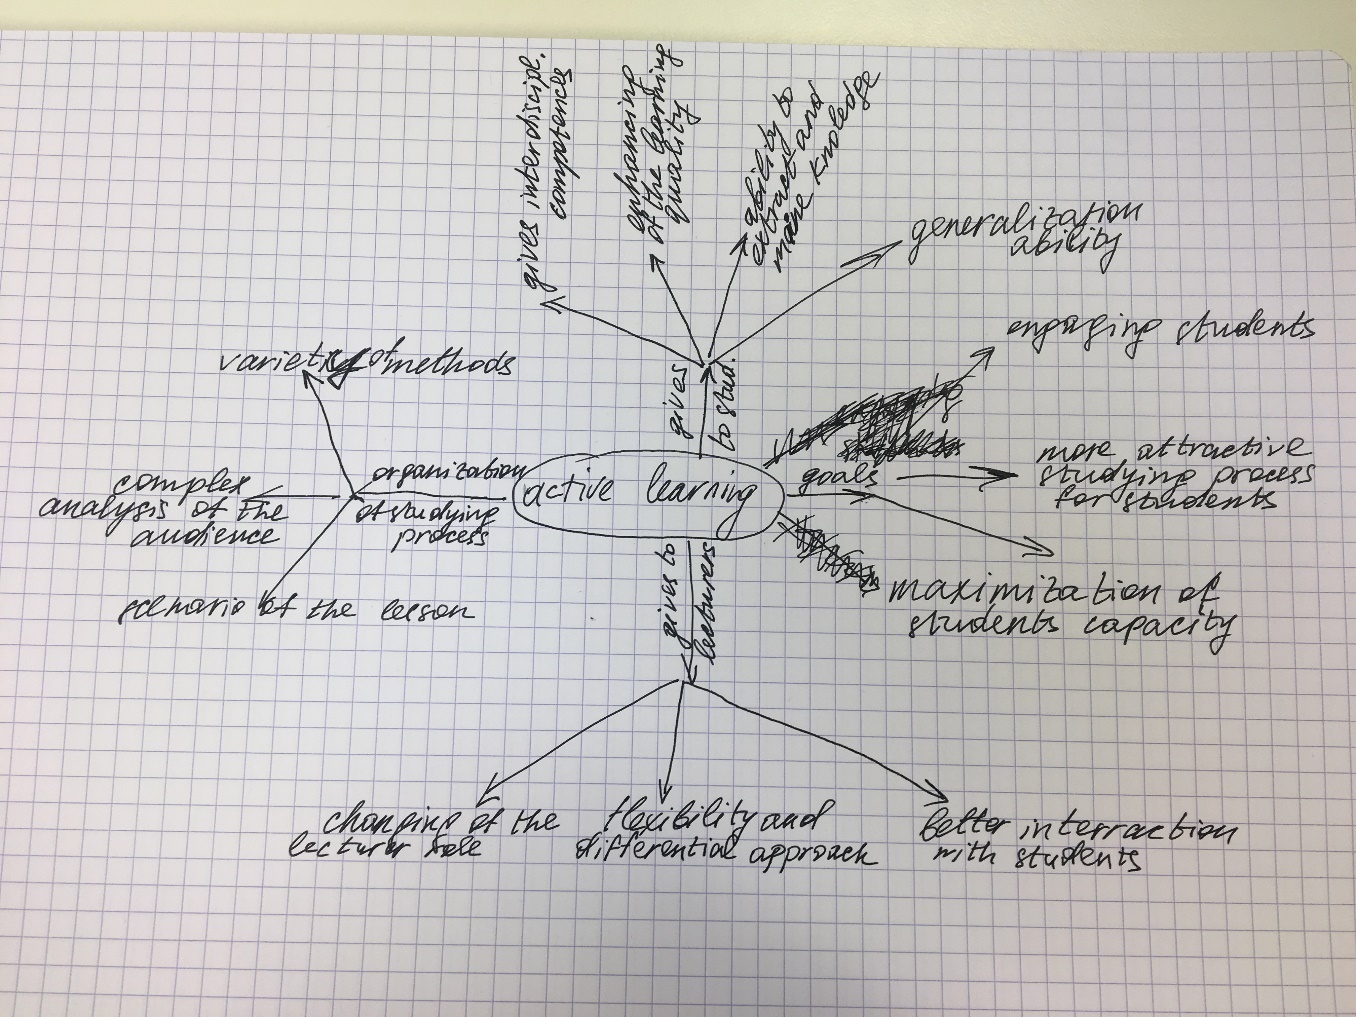 gives interdiscipl.
competences
enhancing
of the learning
quality
ability to
extract and
make knoledge
generalization
ability
engaging students
variety of methods
gives
to stud.
goals
more attractive
studying process
for students
complex
analysis of the
audience
organization
of studying
process
active learning
scenario of the lesson
gives to
lecturers
maximization of
students capacity
changing of the
lecturer role
flexibility and
differential approach
better interraction
with students